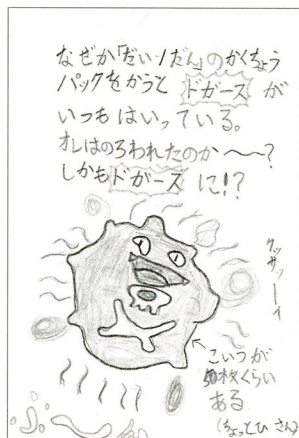 なぜか「だいノだん」のかくちょう
パックをかうと ドガース が
いつもはいっている。
オレはのろわれたのか〜〜?
しかもドガース に!?
クッサッーイ
こいつが
50枚くらい
ある
(ちょっとひ さん)